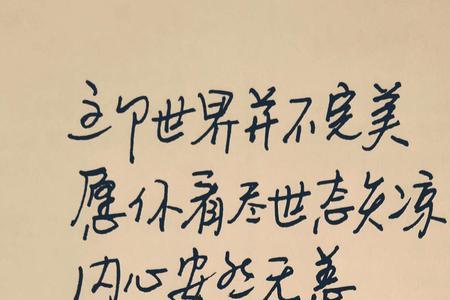 这个世界并不完美
愿你看尽世态炎凉
内心安然无恙